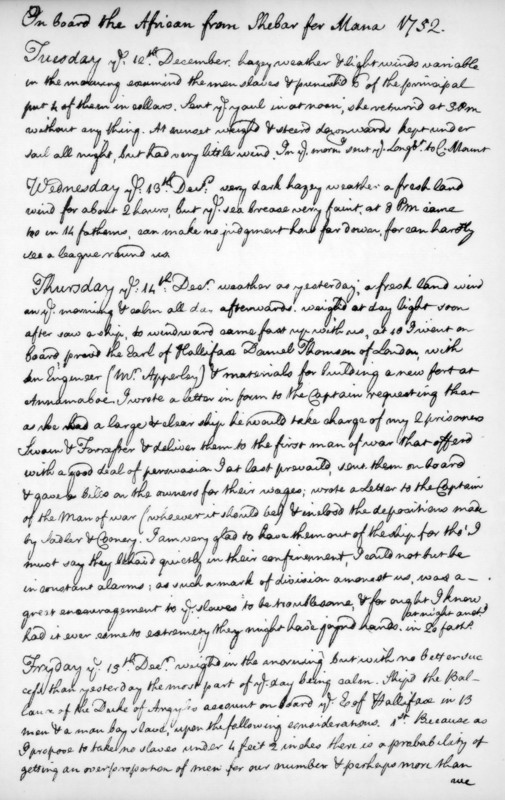 On board the African from Shebar for Mana 1752.
Tuesday ye. 12th. December. hazey weather & light winds variable
in the morning. examined the men slaves & punish'd 6 of the principal
put 4 of them in collars. Sent ye. yaul in at noon, she return'd at 3 Pm
without any thing. At sunset weigh'd & steer'd downwards kept under
sail all night, but had very little wind. In ye. morng. sent ye. Longbt. to C: Mount
Wednesday ye. 13th Decr. very dark hazey weather a fresh land
wind for about 2 hours, but ye. sea brease very faint, at 8 Pm came
too in 14 fathoms, can make no judgment how far down, for can hardly
see a league round us.
Thursday ye. 14th: Decr. weather as yesterday; a fresh land wind
in ye. morning & calm all day afterwards. weigh'd at day light soon
after saw a ship, to windward came fast up with us, at 10 I went on
board, prov'd the Earl of Hallifax Daniel Thomson of London, with
an Engineer (Mr. Apperley) & materials for building a new fort at
Annamaboe. I wrote a letter in form to the Captain requesting that
as he had a large & clear ship he would take charge of my 2 prisoners
Swain & Forrester & deliver them to the first man of war that offer'd
with a good deal of perswasion I at last prevail'd, sent them on board
& gave bills on the owners for their wages; wrote a Letter to the Captain
of the Man of war (whoever it should be) & inclos'd the depositions made
by Sadler & Cooney. I am very glad to have them out of the ship, for tho' I
must say they behav'd quietly in their confinement, I could not but be
in constant alarms; as such a mark of division amongst us, was a
great encouragement to ye. slaves to be troublesome, & for ought I know
had it ever come to extremity they might have joyn'd hands. at night anchd. in 20 faths.
Fryday ye. 15th Decr. weigh'd in the morning but with no better suc
cess than yesterday the most part of ye. day being calm. Ship'd the Bal-
lance of the Duke of Argyle's account on board ye. E: of Hallifax in 13
men & a man boy slave, upon the following considerations. 1st. Because as
I propose to take no slaves under 4 feet 2 inches there is a probability of
getting an over proportion of men for our number & perhaps more than
we